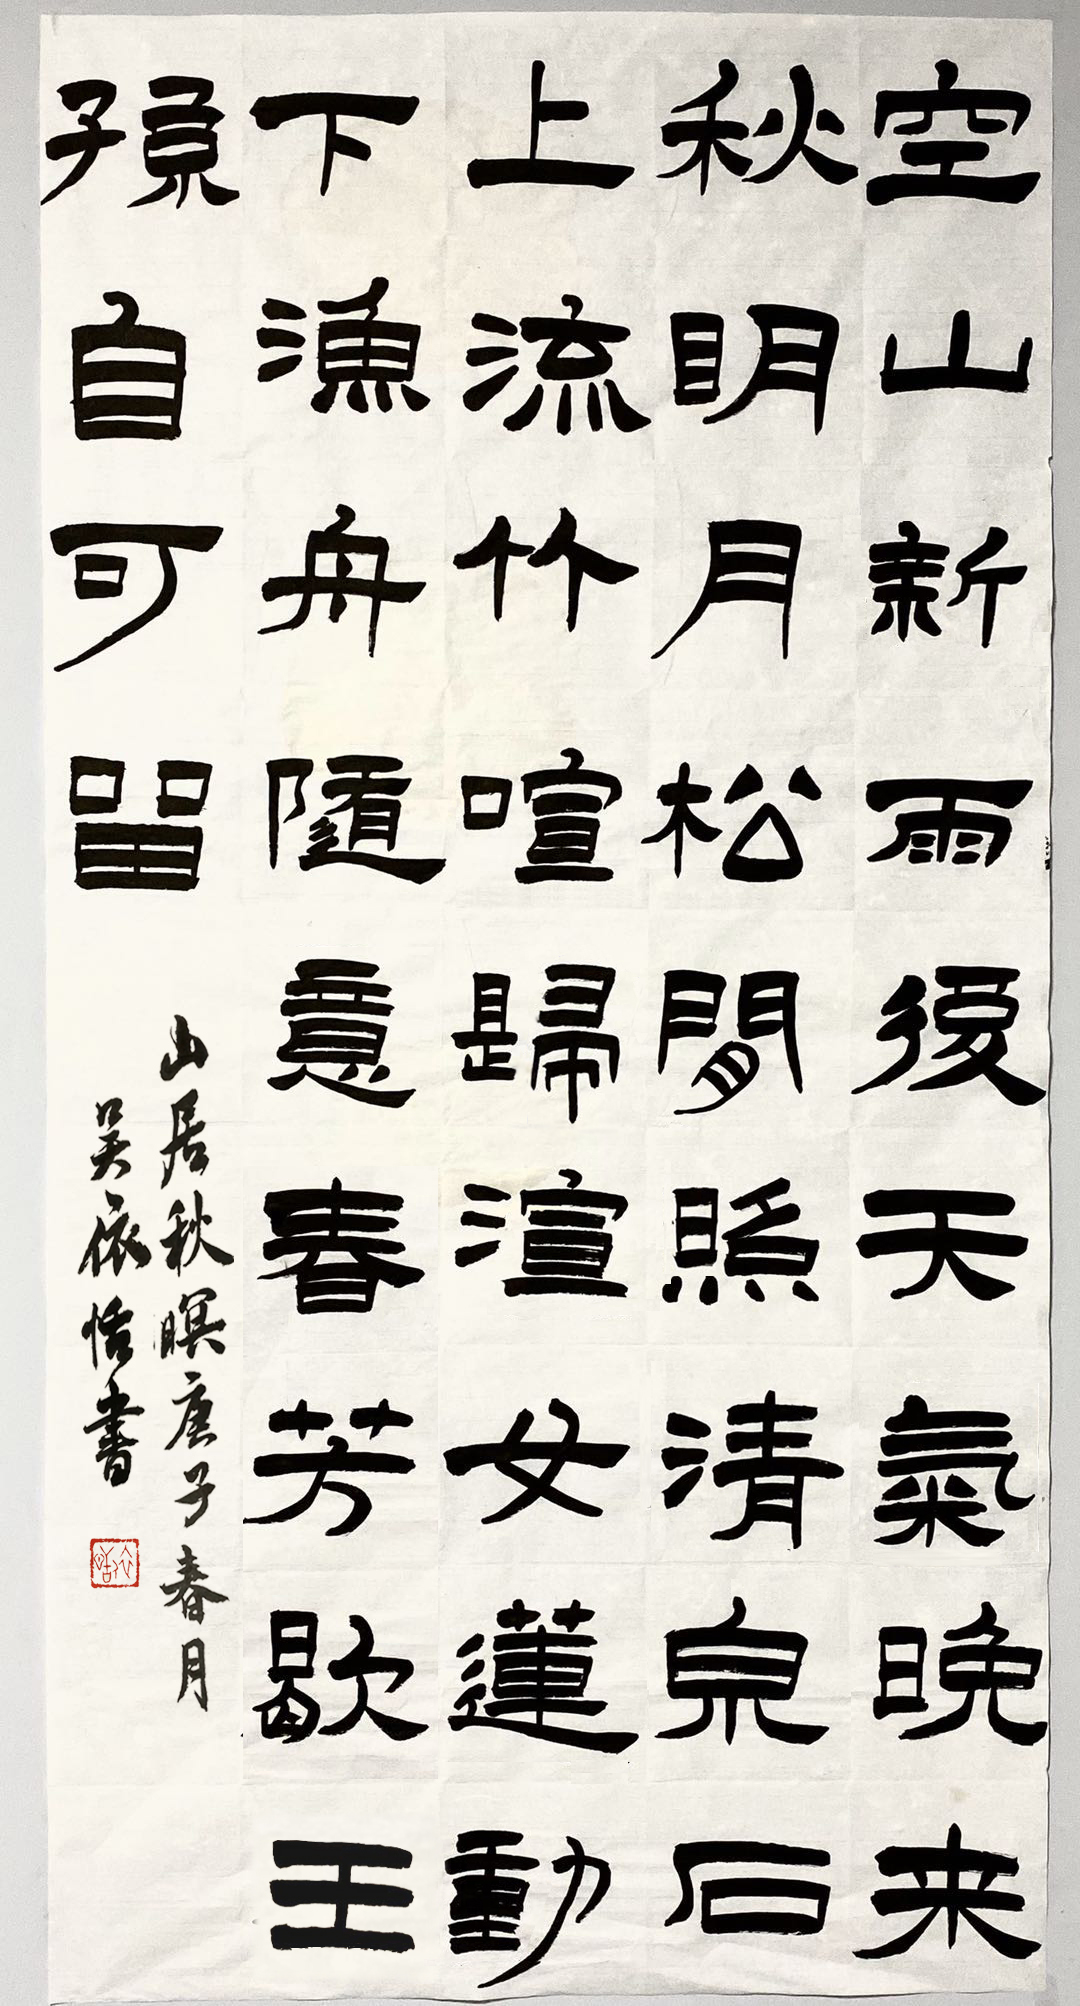 空山新雨後天氣晚来
秋明月松間照清泉石
上流竹喧歸渲女蓮動
下漁舟隨意春芳歇王
孫自可留
山居秋暝庚子春月
吴依恬書